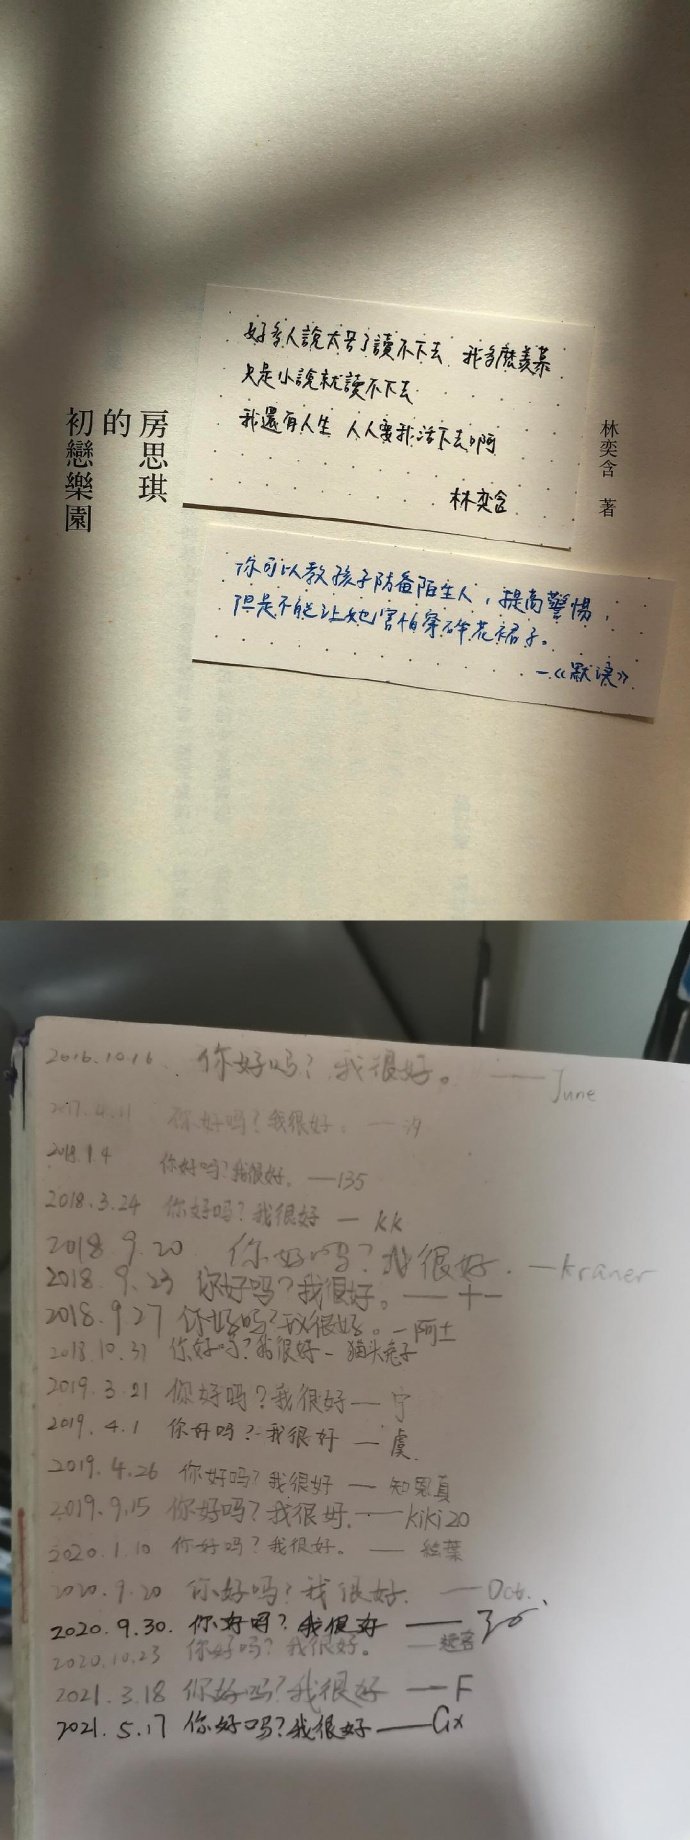 好多人說太苦了讀不下去 我多麽羨慕
只是小說就讀不下去
我還有人生 人人要我活下去啊
林奕含
林奕含 著
房思琪
的
初戀樂園
你可以教孩子防备陌生人，提高警惕，
但是不能让她害怕穿碎花裙子。
—《默读》
2016.10.16 你好吗？我很好。——June
2017.4.11 你好吗？我很好。—汐
2018.1.4 你好吗？我很好。—135
2018.3.24 你好吗？我很好 — kk
2018.9.20 你好吗？我很好. —kramer
2018.9.23 你好吗？我很好。——十一
2018.9.27 你好吗？我很好。—阿土
2018.10.31 你好吗？我很好—猫头兔子
2019.3.21 你好吗？我很好—宁
2019.4.1 你好吗？我很好 —虞
2019.4.26 你好吗？我很好 —
2019.9.15 你好吗？我很好.——kiki20
2020.1.10 你好吗？我很好。—
2020.9.20 你好吗？我很好. ——Oct.
2020.9.30. 你好吗？我很好 ——
2020.10.23 你好吗？我很好。——
2021.3.18 你好吗？我很好 —F
2021.5.17 你好吗？我很好——Gx